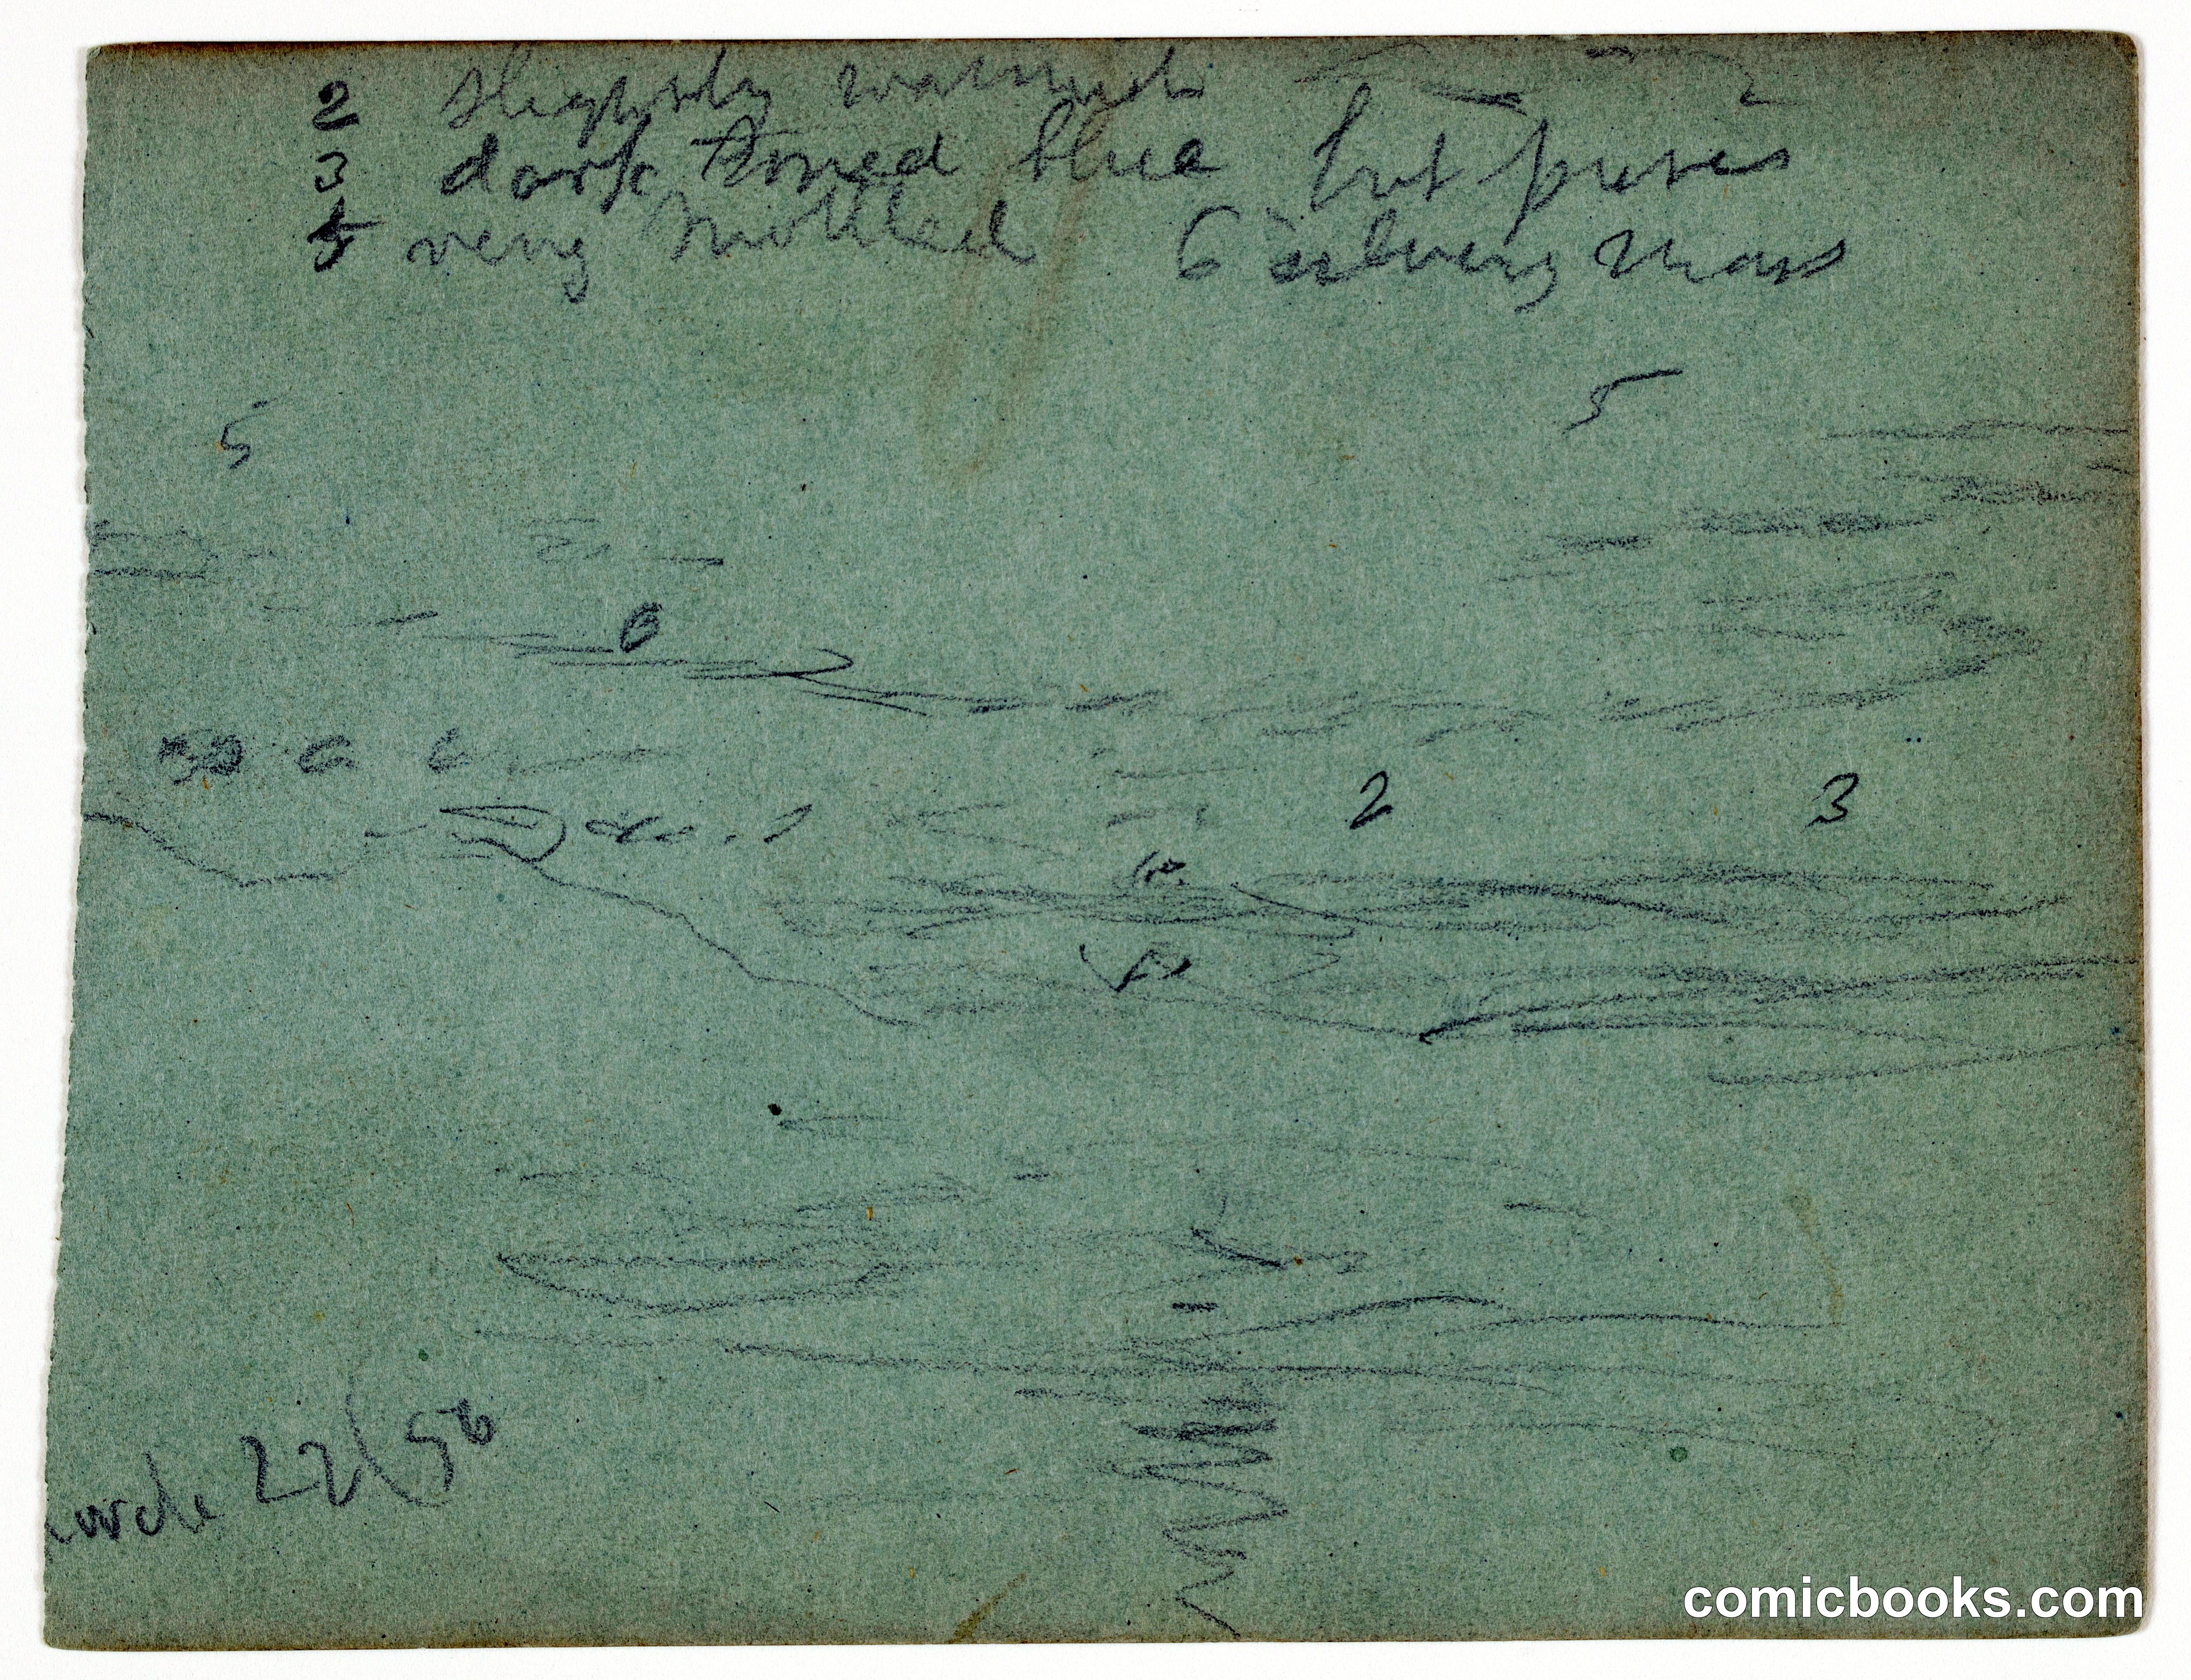 2 slightly
3 dark toned blue but purer
5 very mottled 6 silvery mass
5
5
6
6 6
2 3
22/56
comicbooks.com